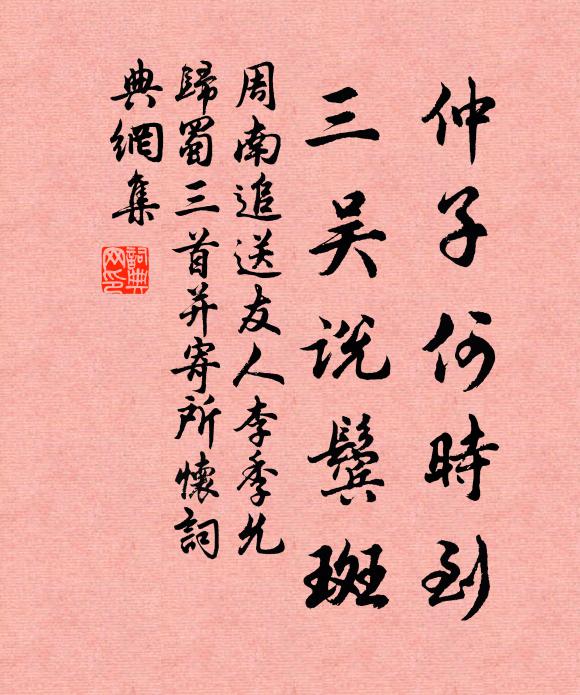 仲子何時到
三吴説鬓斑
周南追送友人李季允
歸蜀三首并寄所懷詞
典網集
詞典網印